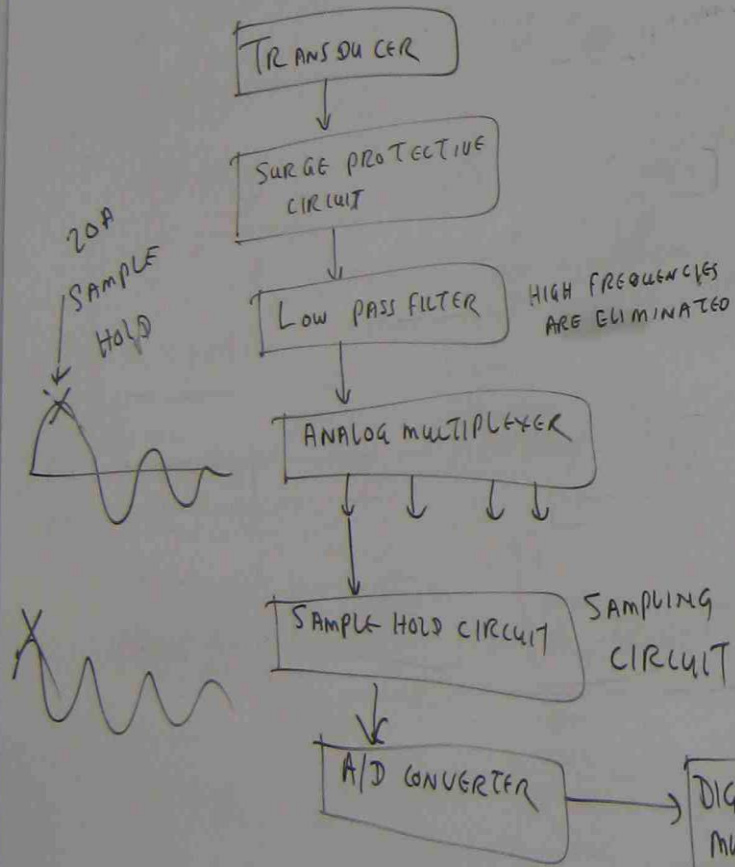 TRANSDUCER
SURGE PROTECTIVE
CIRCUIT
20A
SAMPLE
HOLD
LOW PASS FILTER
HIGH FREQUENCIES
ARE ELIMINATED
ANALOG MULTIPLEXER
SAMPLE HOLD CIRCUIT
SAMPLING
CIRCUIT
A/D CONVERTER
DIG
MU